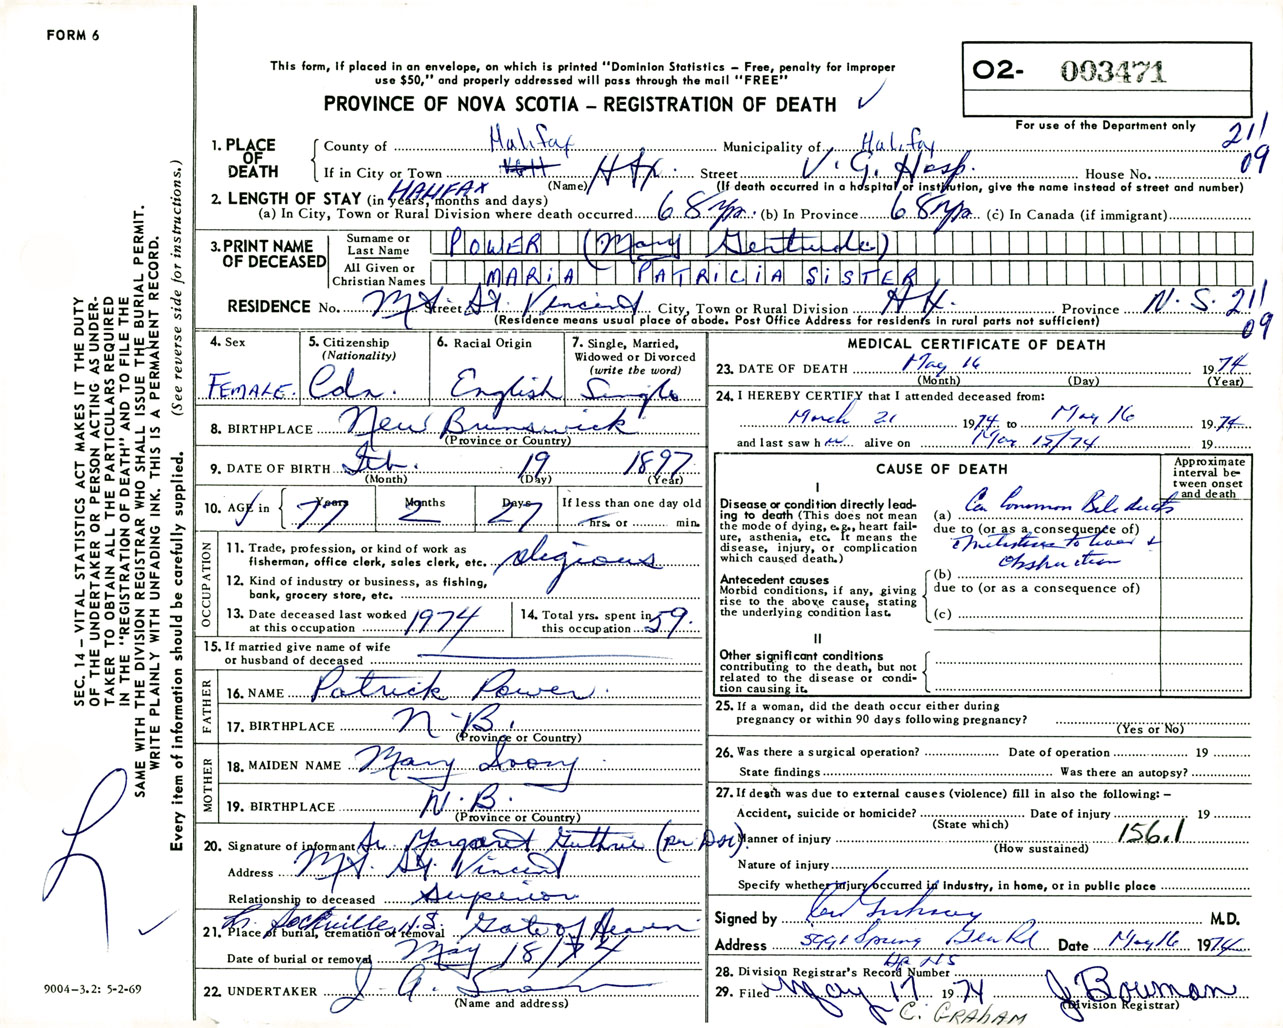 FORM 6
This form, if placed in an envelope, on which is printed "Dominion Statistics – Free, penalty for improper
use $50," and properly addressed will pass through the mail "FREE"
PROVINCE OF NOVA SCOTIA – REGISTRATION OF DEATH ✓
O2- 003471
For use of the Department only
211
09
SEC. 14 – VITAL STATISTICS ACT MAKES IT THE DUTY
OF THE UNDERTAKER OR PERSON ACTING AS UNDER-
TAKER TO OBTAIN ALL THE PARTICULARS REQUIRED
IN THE "REGISTRATION OF DEATH" AND TO FILE THE
SAME WITH THE DIVISION REGISTRAR WHO SHALL ISSUE THE BURIAL PERMIT.
WRITE PLAINLY WITH UNFADING INK. THIS IS A PERMANENT RECORD.
Every item of information should be carefully supplied. (See reverse side for instructions.)
1. PLACE OF DEATH
County of Halifax Municipality of Halifax
If in City or Town VGH Hfx. Street V. G. Hosp. House No.
HALIFAX (Name) (If death occurred in a hospital or institution, give the name instead of street and number)
2. LENGTH OF STAY (in years, months and days)
(a) In City, Town or Rural Division where death occurred 68 yrs. (b) In Province 68 yrs. (c) In Canada (if immigrant)
3. PRINT NAME OF DECEASED
Surname or Last Name POWER (Mary Gertrude)
All Given or Christian Names MARIA PATRICIA SISTER
RESIDENCE No. Mt. Street St. Vincent City, Town or Rural Division Hfx. Province N. S. 211
09
(Residence means usual place of abode. Post Office Address for residents in rural parts not sufficient)
4. Sex FEMALE.
5. Citizenship (Nationality) Cdn.
6. Racial Origin English
7. Single, Married, Widowed or Divorced (write the word) Single
8. BIRTHPLACE New Brunswick
(Province or Country)
9. DATE OF BIRTH Feb. 19 1897
(Month) (Day) (Year)
10. AGE in Years 77 Months 2 Days 27 If less than one day old hrs. or min.
OCCUPATION
11. Trade, profession, or kind of work as
fisherman, office clerk, sales clerk, etc. religious
12. Kind of industry or business, as fishing,
bank, grocery store, etc.
13. Date deceased last worked at this occupation 1974
14. Total yrs. spent in this occupation 59.
15. If married give name of wife
or husband of deceased
FATHER
16. NAME Patrick Power.
17. BIRTHPLACE N.B.
(Province or Country)
MOTHER
18. MAIDEN NAME Mary
19. BIRTHPLACE N.B.
(Province or Country)
20. Signature of informant Sr. Margaret Guthrie (per
Address Mt. St. Vincent
Relationship to deceased Superior
21. Place of burial, cremation or removal Lr. Sackville N.S. Gate of Heaven
Date of burial or removal May 18/74
22. UNDERTAKER J. A. Snow
(Name and address)
9004-3.2: 5-2-69
MEDICAL CERTIFICATE OF DEATH
23. DATE OF DEATH May 16 1974
(Month) (Day) (Year)
24. I HEREBY CERTIFY that I attended deceased from:
March 21 1974 to May 16 1974
and last saw her alive on May 15/74 19
CAUSE OF DEATH
Approximate interval between onset and death
I
Disease or condition directly lead-
ing to death (This does not mean
the mode of dying, e.g., heart fail-
ure, asthenia, etc. It means the
disease, injury, or complication
which caused death.)
(a) Ca Common Bile ducts
due to (or as a consequence of)
c metastases to liver &
obstruction
Antecedent causes
Morbid conditions, if any, giving
rise to the above cause, stating
the underlying condition last.
(b)
due to (or as a consequence of)
(c)
II
Other significant conditions
contributing to the death, but not
related to the disease or condi-
tion causing it.
25. If a woman, did the death occur either during
pregnancy or within 90 days following pregnancy?
(Yes or No)
26. Was there a surgical operation? Date of operation 19
State findings Was there an autopsy?
27. If death was due to external causes (violence) fill in also the following: –
Accident, suicide or homicide? Date of injury 19
(State which)
Manner of injury 156.1
(How sustained)
Nature of injury
Specify whether injury occurred in industry, in home, or in public place
Signed by M.D.
Address 5991 Spring Gdn Rd Date May 16 1974
Hfx NS
28. Division Registrar's Record Number
29. Filed May 17 1974 J Bowman
(Division Registrar)
C. GRAHAM